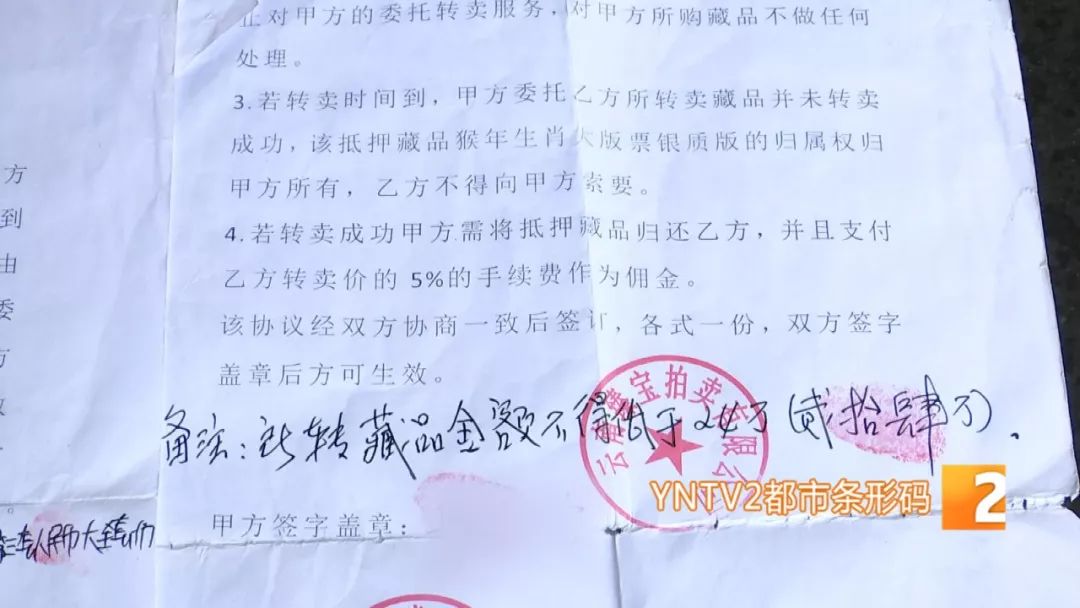 止对甲方的委托转卖服务，对甲方所购藏品不做任何
处理。
3.若转卖时间到，甲方委托乙方所转卖藏品并未转卖
成功，该抵押藏品猴年生肖大版票银质版的归属权归
甲方所有，乙方不得向甲方索要。
4.若转卖成功甲方需将抵押藏品归还乙方，并且支付
乙方转卖价的 5%的手续费作为佣金。
该协议经双方协商一致后签订，各式一份，双方签字
盖章后方可生效。
备注：所转藏品金额不得低于24万（贰拾肆万）.
宝拍卖有限公
YNTV2都市条形码
2
甲方签字盖章：
方
到
由
委
方
人民币大全套